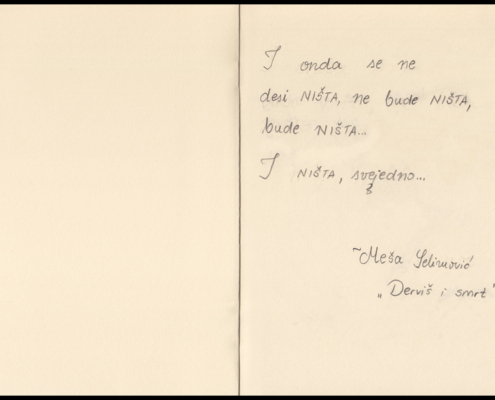 I onda se ne
desi NIŠTA, ne bude NIŠTA,
bude NIŠTA...
I NIŠTA, svejedno...
~Meša Selimović
„Derviš i smrt"